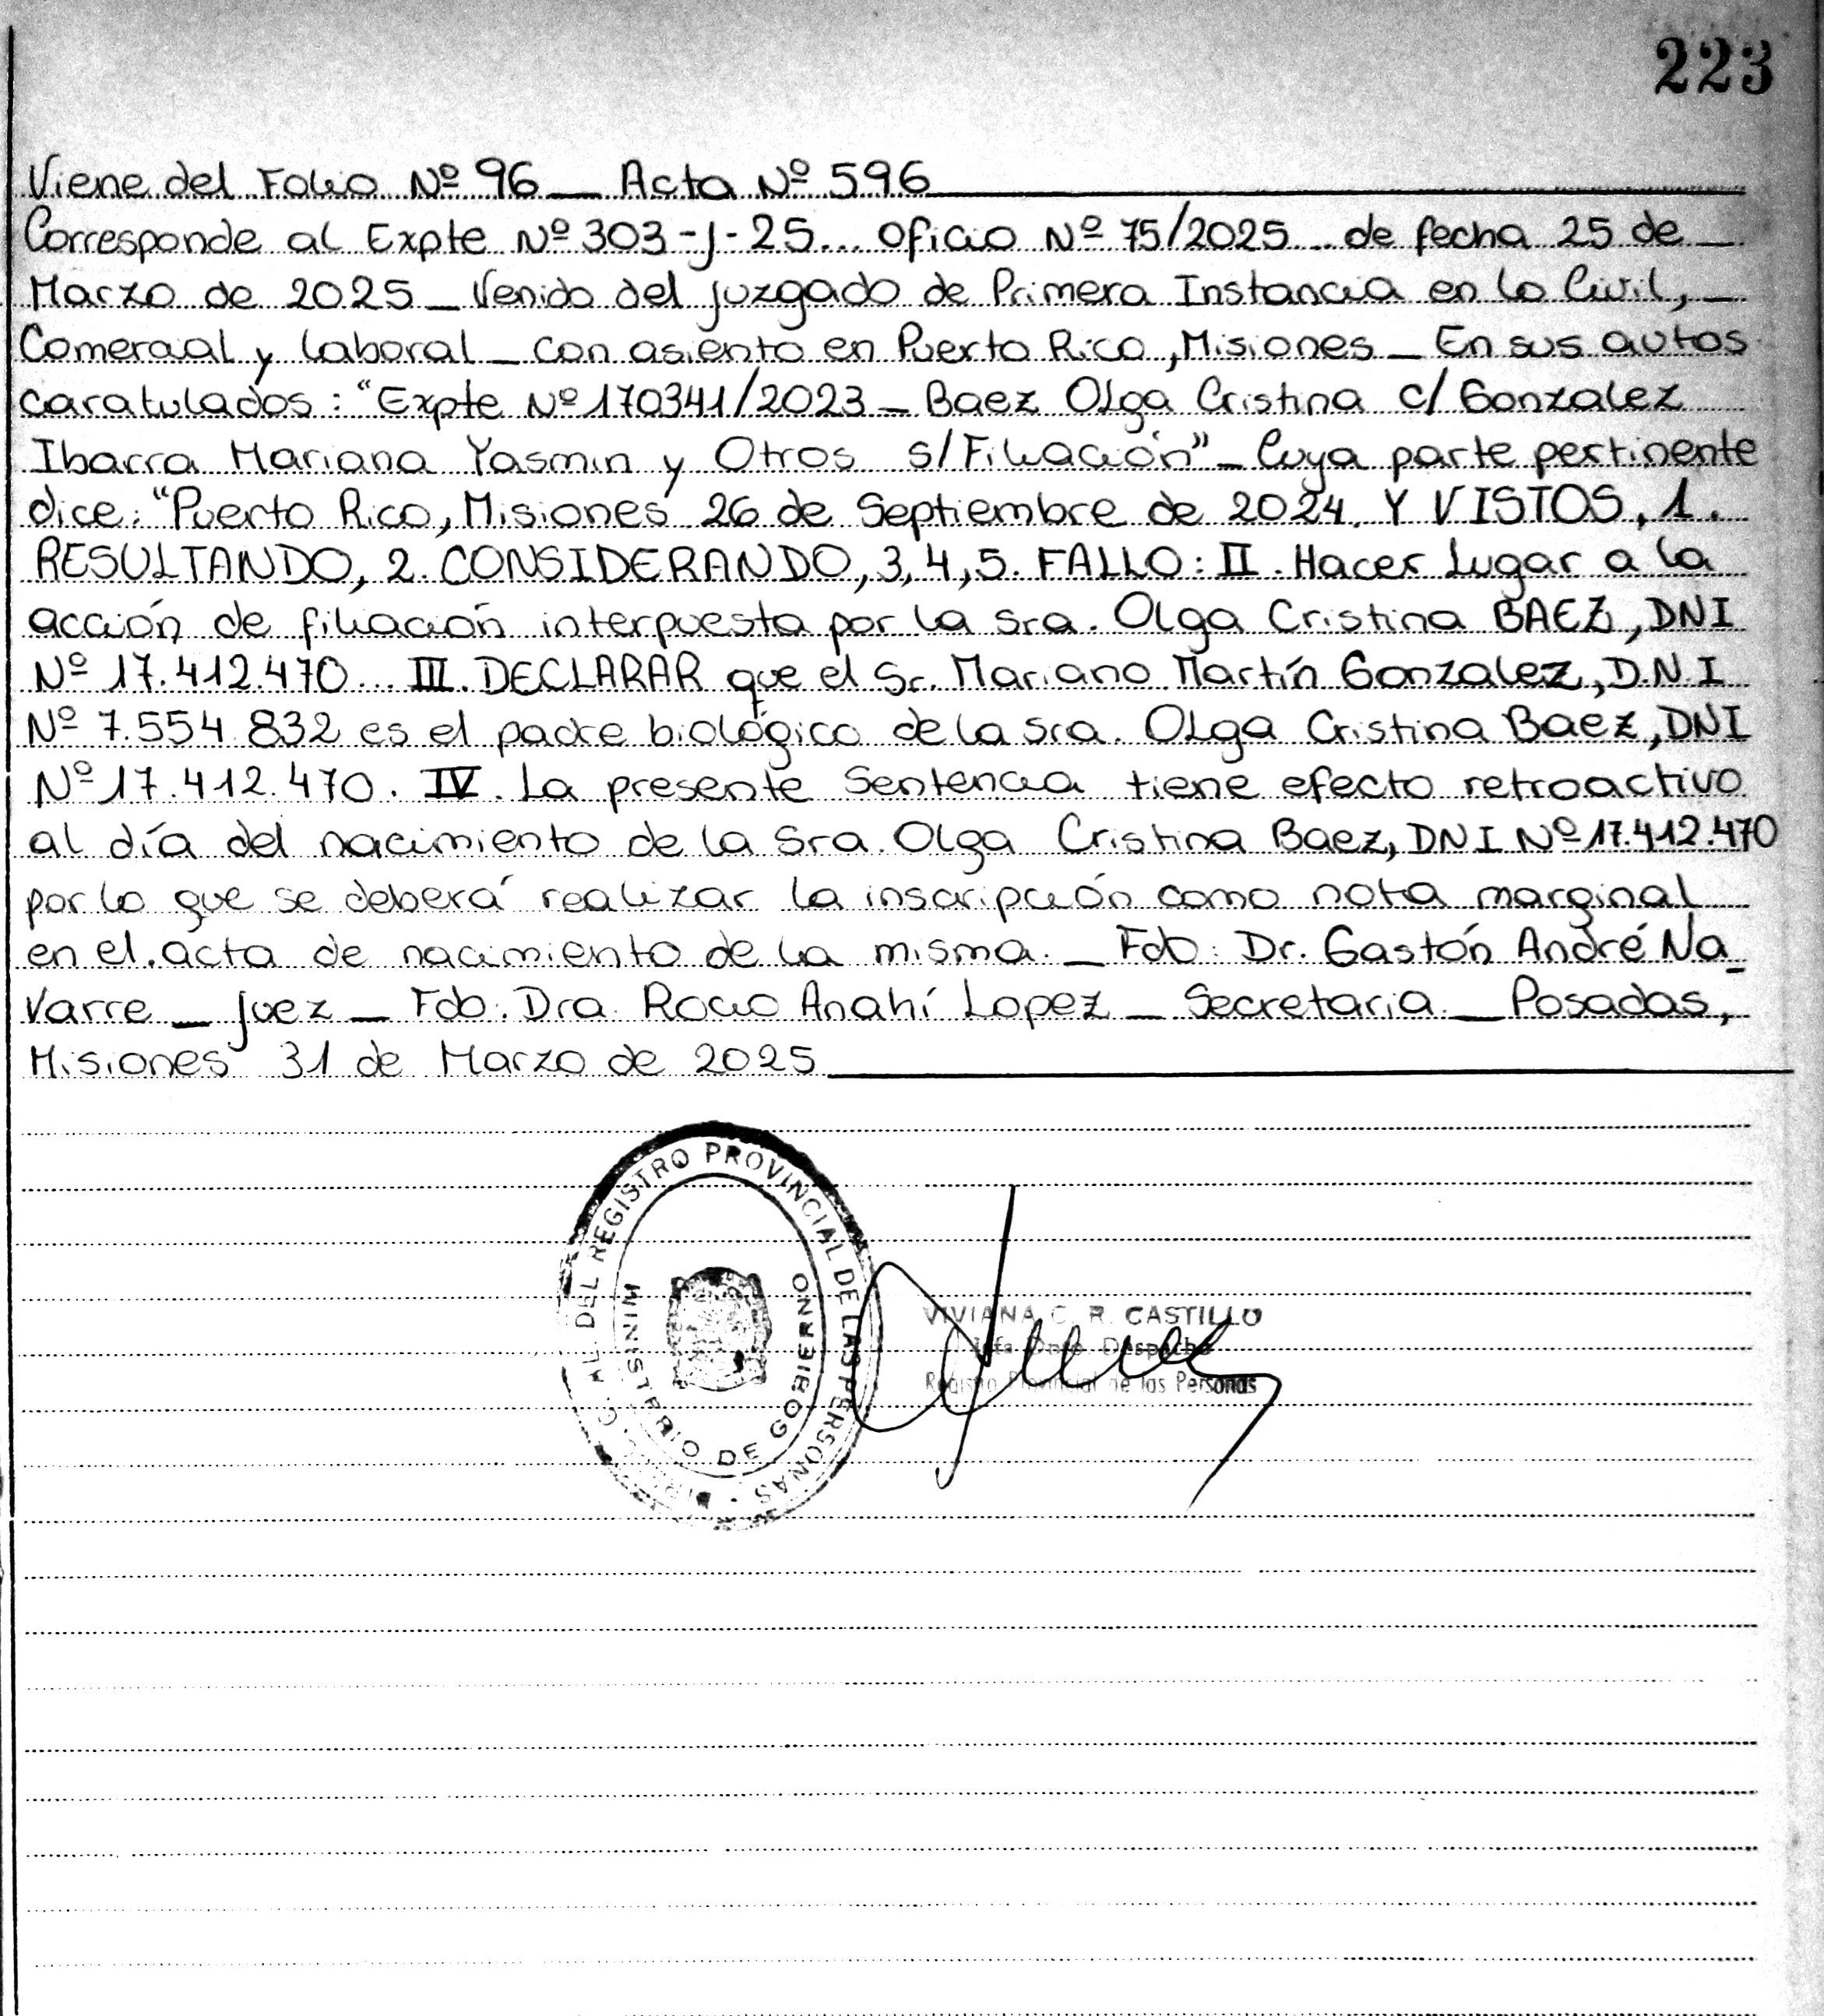 223
Viene del Folio Nº 96 _ Acta Nº 596
Corresponde al Expte Nº 303-J-25... Oficio Nº 75/2025 _ de fecha 25 de _
Marzo de 2025 _ Venido del Juzgado de Primera Instancia en lo Civil, _
Comercial y Laboral _ con asiento en Puerto Rico, Misiones _ En sus autos
caratulados: "Expte Nº 170341/2023 _ Baez Olga Cristina c/ Gonzalez
Ibarra Mariana Yasmin y Otros s/Filiación" _ Cuya parte pertinente
dice: "Puerto Rico, Misiones 26 de Septiembre de 2024. Y VISTOS, 1.
RESULTANDO, 2. CONSIDERANDO, 3, 4, 5. FALLO: II. Hacer Lugar a la
acción de filiación interpuesta por la Sra. Olga Cristina BAEZ, DNI
Nº 17.412.470... III. DECLARAR que el Sr. Mariano Martín Gonzalez, D.N.I
Nº 7.554.832 es el padre biológico de la Sra. Olga Cristina Baez, DNI
Nº 17.412.470. IV. La presente Sentencia tiene efecto retroactivo
al día del nacimiento de la Sra. Olga Cristina Baez, DNI Nº 17.412.470
por lo que se deberá realizar la inscripción como nota marginal
en el acta de nacimiento de la misma. _ Fdo: Dr. Gastón André Na_
varre _ Juez _ Fdo: Dra. Rocio Anahí Lopez _ Secretaria _ Posadas,
Misiones 31 de Marzo de 2025
DEL REGISTRO PROVINCIAL DE LAS PERSONAS
MINISTERIO DE GOBIERNO
VIVIANA C. R. CASTILLO
Despacho
Registro Provincial de las Personas